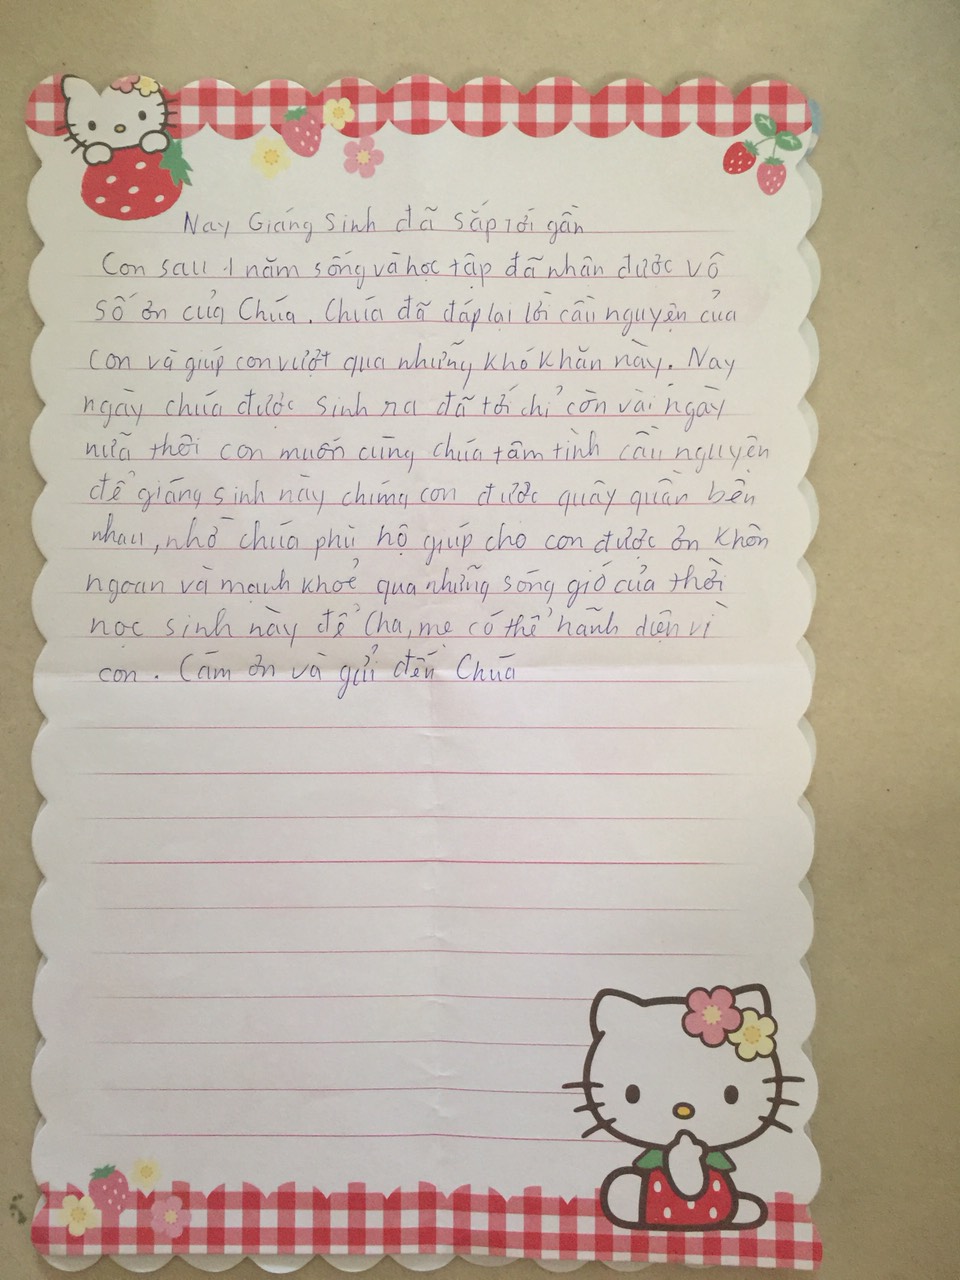 Nay Giáng Sinh đã sắp tới gần
Con sau 1 năm sống và học tập đã nhận được vô
số ơn của Chúa. Chúa đã đáp lại lời cầu nguyện của
con và giúp con vượt qua những khó khăn này. Nay
ngày chúa được sinh ra đã tới chỉ còn vài ngày
nữa thôi con muốn cùng chúa tâm tình cầu nguyện
để giáng sinh này chúng con được quây quần bên
nhau, nhờ chúa phù hộ giúp cho con được ơn khôn
ngoan và mạnh khoẻ qua những sóng gió của thời
học sinh này để Cha, mẹ có thể hãnh diện vì
con. Cám ơn và gửi đến Chúa